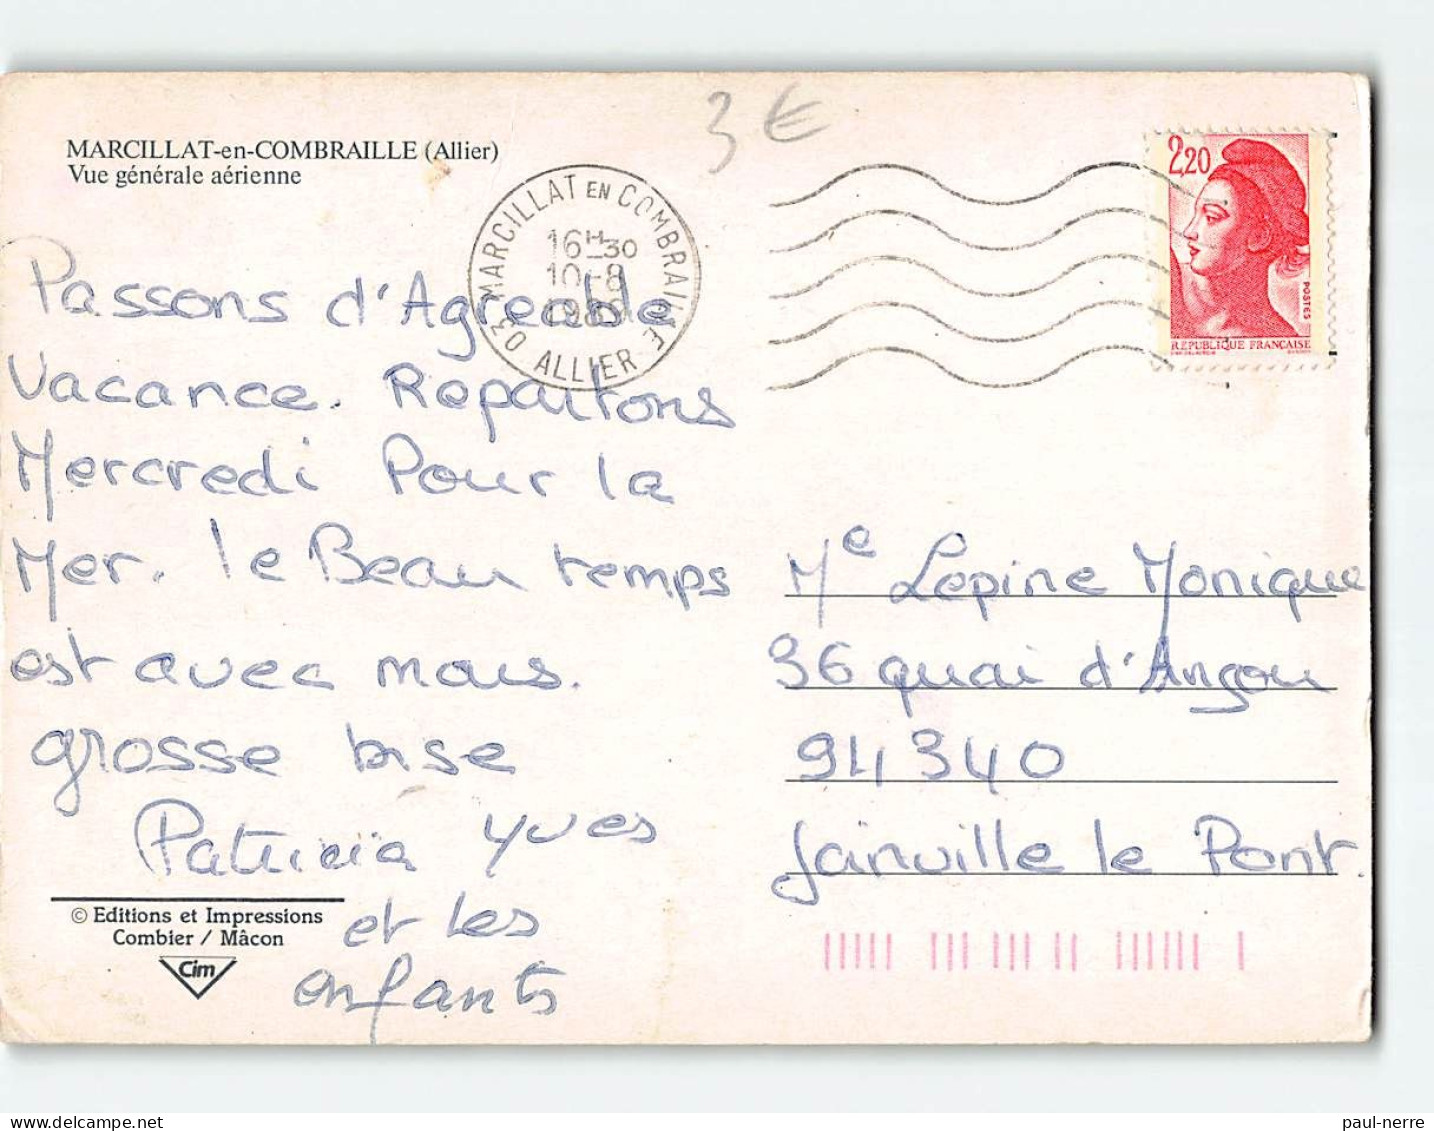 MARCILLAT-en-COMBRAILLE (Allier)
Vue générale aérienne
3€
MARCILLAT EN COMBRAILLE
16H30
10-8
03 ALLIER
2,20
POSTES
REPUBLIQUE FRANÇAISE
Passons d'Agreable
Vacance. Repartons
Mercredi Pour la
Mer. le Beau temps
est avec nous.
grosse bise
Patricia Yves
et les
enfants
Me Lepine Monique
36 quai d'Anjou
94340
Joinville le Pont.
© Editions et Impressions
Combier / Mâcon
Cim
paul-nerre